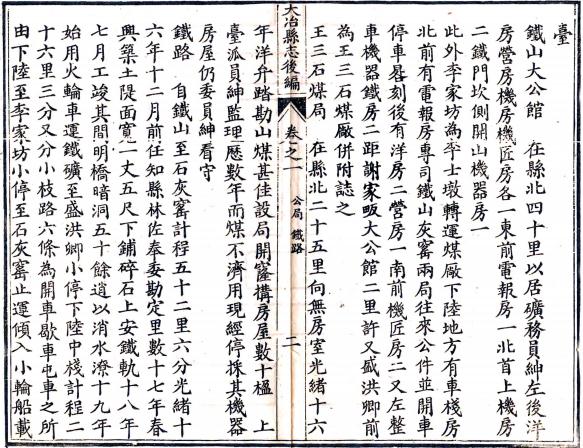 臺
鐵山大公館　在縣北四十里以居礦務員紳左後洋
房營房機房機匠房各一東前電報房一北首上機房
二鐵門坎側開山機器房一
此外李家坊為李士墩轉運煤廠下陸地方有車棧房
北前有電報房專司鐵山灰窰兩局往來公件並開車
停車晷刻後有洋房二營房一南前機匠房二又左整
車機器鐵房二距謝家畈大公館二里許又盛洪卿前
為王三石煤廠併附誌之
王三石煤局　在縣北二十五里向無房室光緒十六
大冶縣志後編　卷之一　公局　鐵路　二
年洋弁踏勘山煤甚佳設局開窿搆房屋數十楹　上
臺派員紳監理歷數年而煤不濟用現經停採其機器
房屋仍委員紳看守
鐵路　自鐵山至石灰窰計程五十二里六分光緒十
六年十二月前任知縣林佐奉委勘定里數十七年春
興築土隄面寬一丈五尺下鋪碎石上安鐵軌十八年
七月工竣其間明橋暗洞五十餘道以消水潦十九年
始用火輪車運鐵礦至盛洪卿小停下陸中棧計程二
十六里三分又分小枝路六條為開車歇車屯車之所
由下陸至李家坊小停至石灰窰止運傾入小輪船載